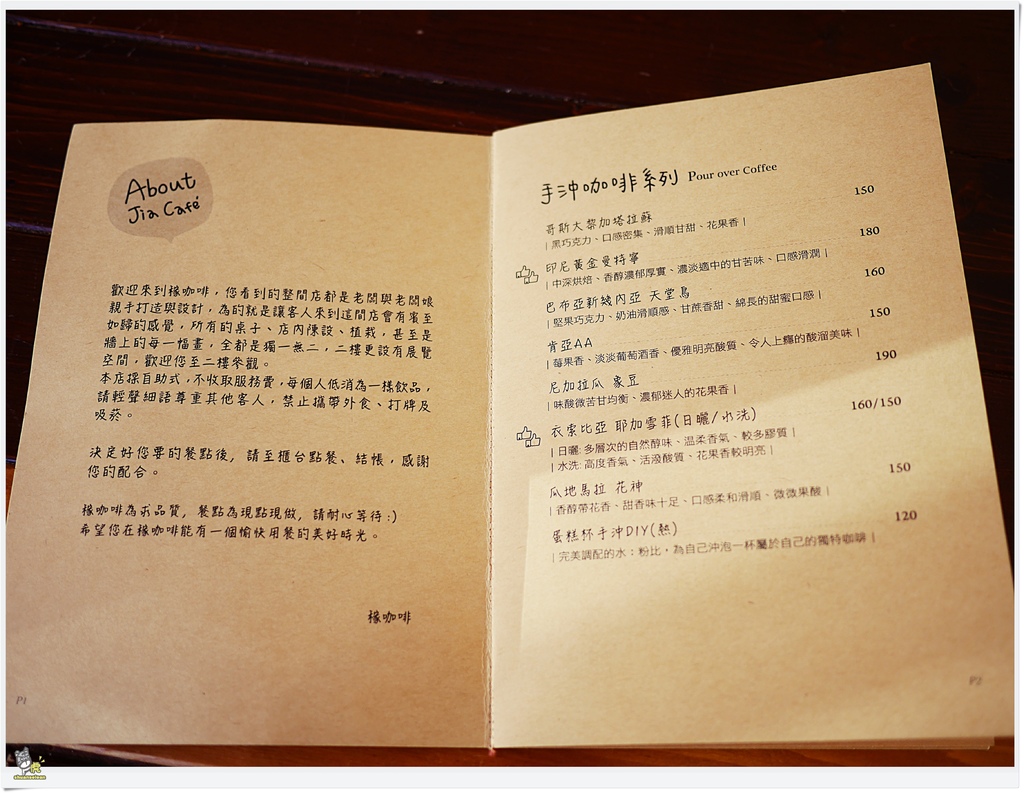 About
Jia Café
歡迎來到椽咖啡，您看到的整間店都是老闆與老闆娘
親手打造與設計，為的就是讓客人來到這間店會有賓至
如歸的感覺，所有的桌子、店內陳設、植栽，甚至是
牆上的每一幅畫，全都是獨一無二，二樓更設有展覽
空間，歡迎您至二樓參觀。
本店採自助式，不收取服務費，每個人低消為一樣飲品，
請輕聲細語尊重其他客人，禁止攜帶外食、打牌及
吸菸。
決定好您要的餐點後，請至櫃台點餐、結帳，感謝
您的配合。
椽咖啡為求品質，餐點為現點現做，請耐心等待:)
希望您在椽咖啡能有一個愉快用餐的美好時光。
椽咖啡
P1
手沖咖啡系列 Pour over Coffee
哥斯大黎加塔拉蘇 150
| 黑巧克力、口感密集、滑順甘甜、花果香 |
印尼黃金曼特寧 180
| 中深烘焙、香醇濃郁厚實、濃淡適中的甘苦味、口感滑潤 |
巴布亞新幾內亞 天堂鳥 160
| 堅果巧克力、奶油滑順感、甘蔗香甜、綿長的甜蜜口感 |
肯亞AA 150
| 莓果香、淡淡葡萄酒香、優雅明亮酸質、令人上癮的酸溜美味 |
尼加拉瓜 象豆 190
| 味酸微苦甘均衡、濃郁迷人的花果香 |
衣索比亞 耶加雪菲(日曬/水洗) 160/150
| 日曬: 多層次的自然醇味、溫柔香氣、較多膠質 |
| 水洗: 高度香氣、活潑酸質、花果香較明亮 |
瓜地馬拉 花神 150
| 香醇帶花香、甜香味十足、口感柔和滑順、微微果酸 |
蛋糕杯手沖DIY(熱) 120
| 完美調配的水：粉比，為自己沖泡一杯屬於自己的獨特咖啡 |
P2